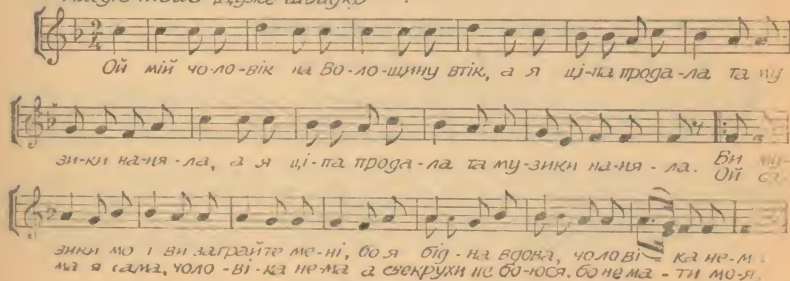 дуже швидко
2/4
Ой мій чо-ло-вік на Во-ло-щину втік, а я ці-па прода-ла та му
зи-ки на-ня-ла, а я ці-па прода-ла та му-зики на-ня - ла. Би му-
Ой са-
зики мо ї ви заграйте ме-ні, бо я бід - на вдова, чолові - ка не-м
ма я сама, чоло - ві - ка не-ма а свекрухи не бо-юся. бо нема - ти мо-я.